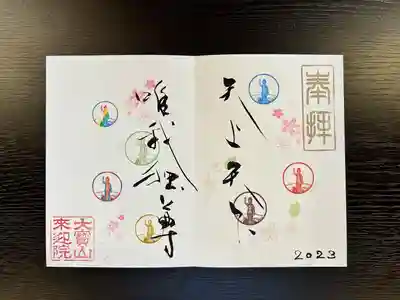 奉拝
天上天下
唯我独尊
2023
大寳山
来迎院